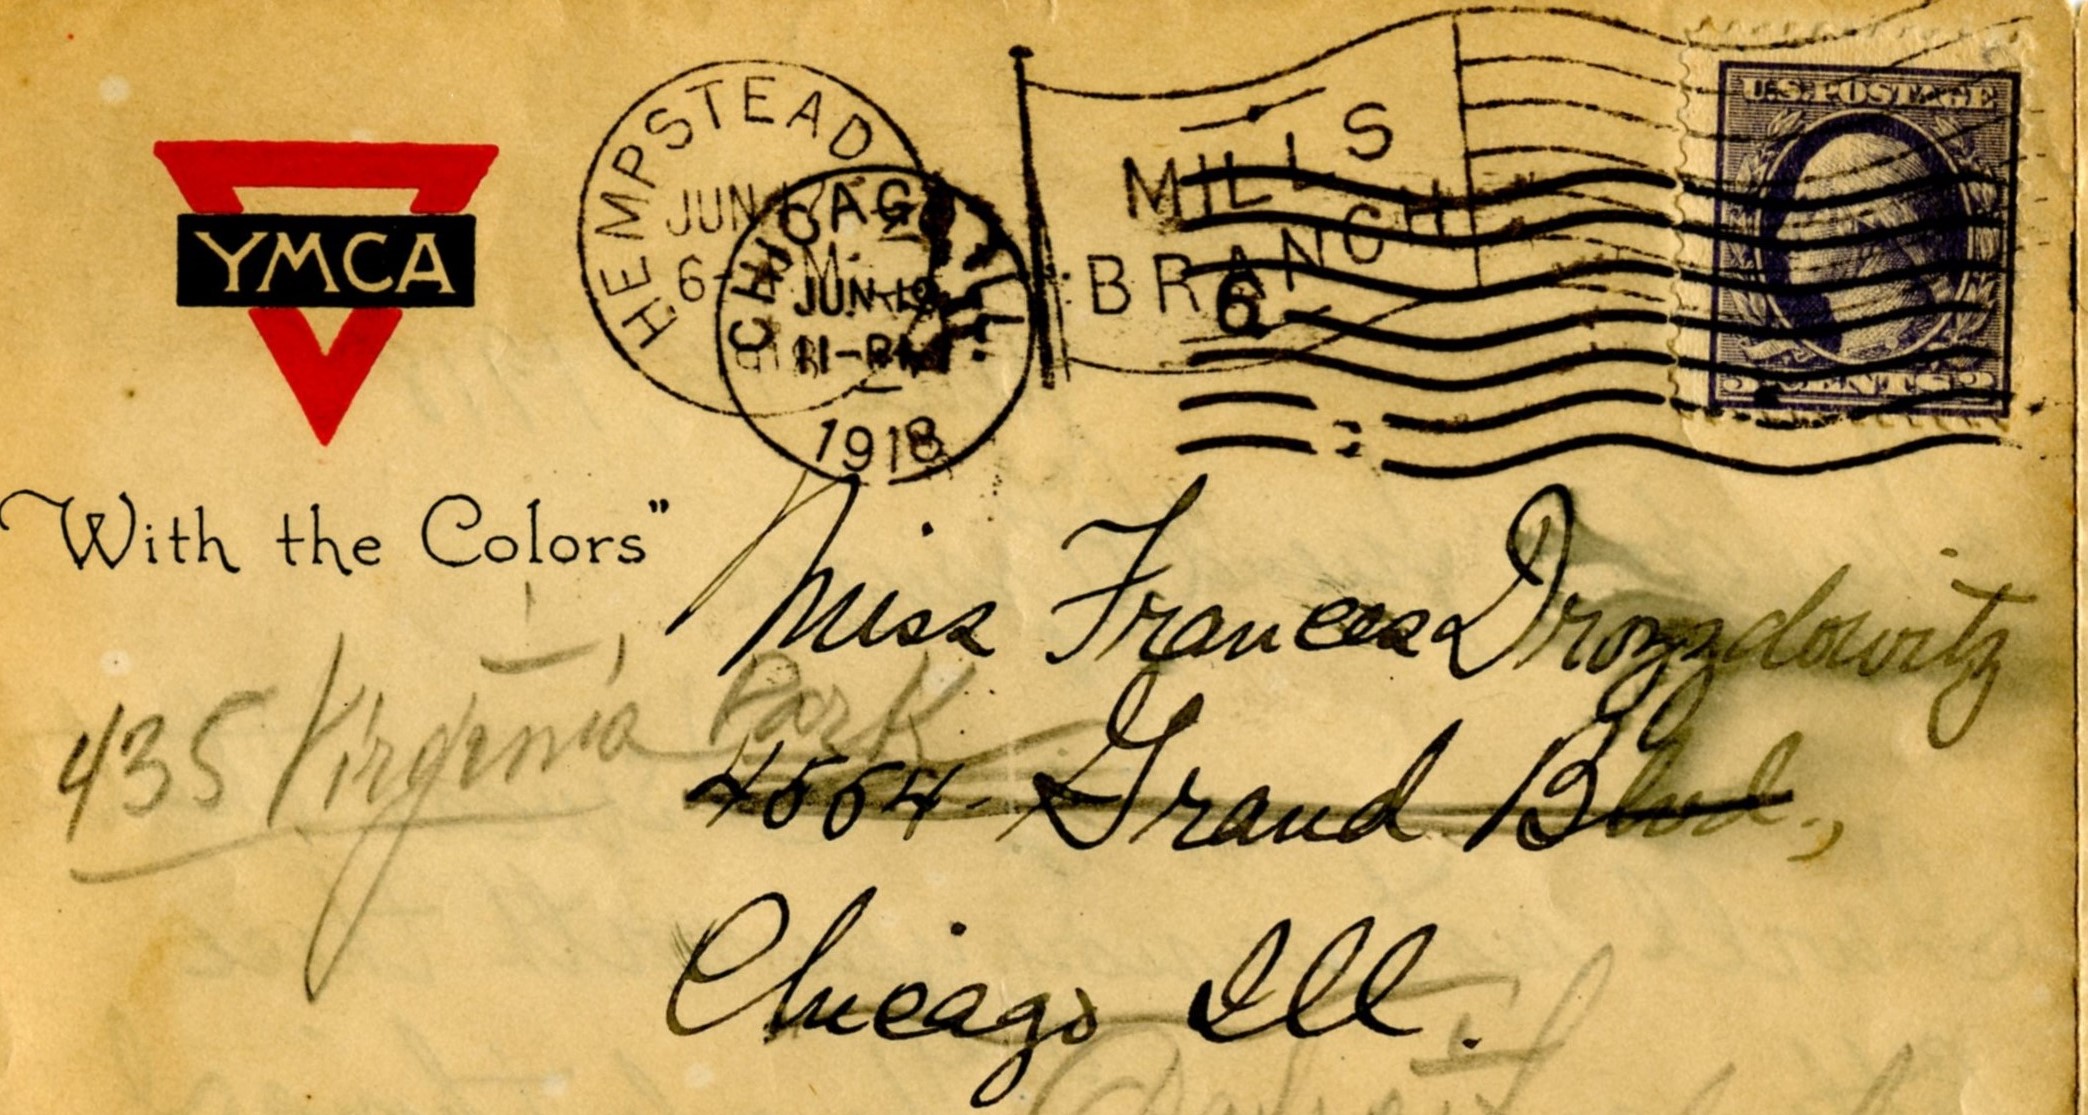 YMCA
With the Colors"
HEMPSTEAD
JUN
6-
MILLS
BRANCH
CHICAGO, ILL.
JUN 19
11-PM
1918
6
U.S. POSTAGE
3 CENTS 3
Miss Frances Drozdowitz
4554 Grand Blvd.,
Chicago Ill.
435 Virginia Park
Detroit